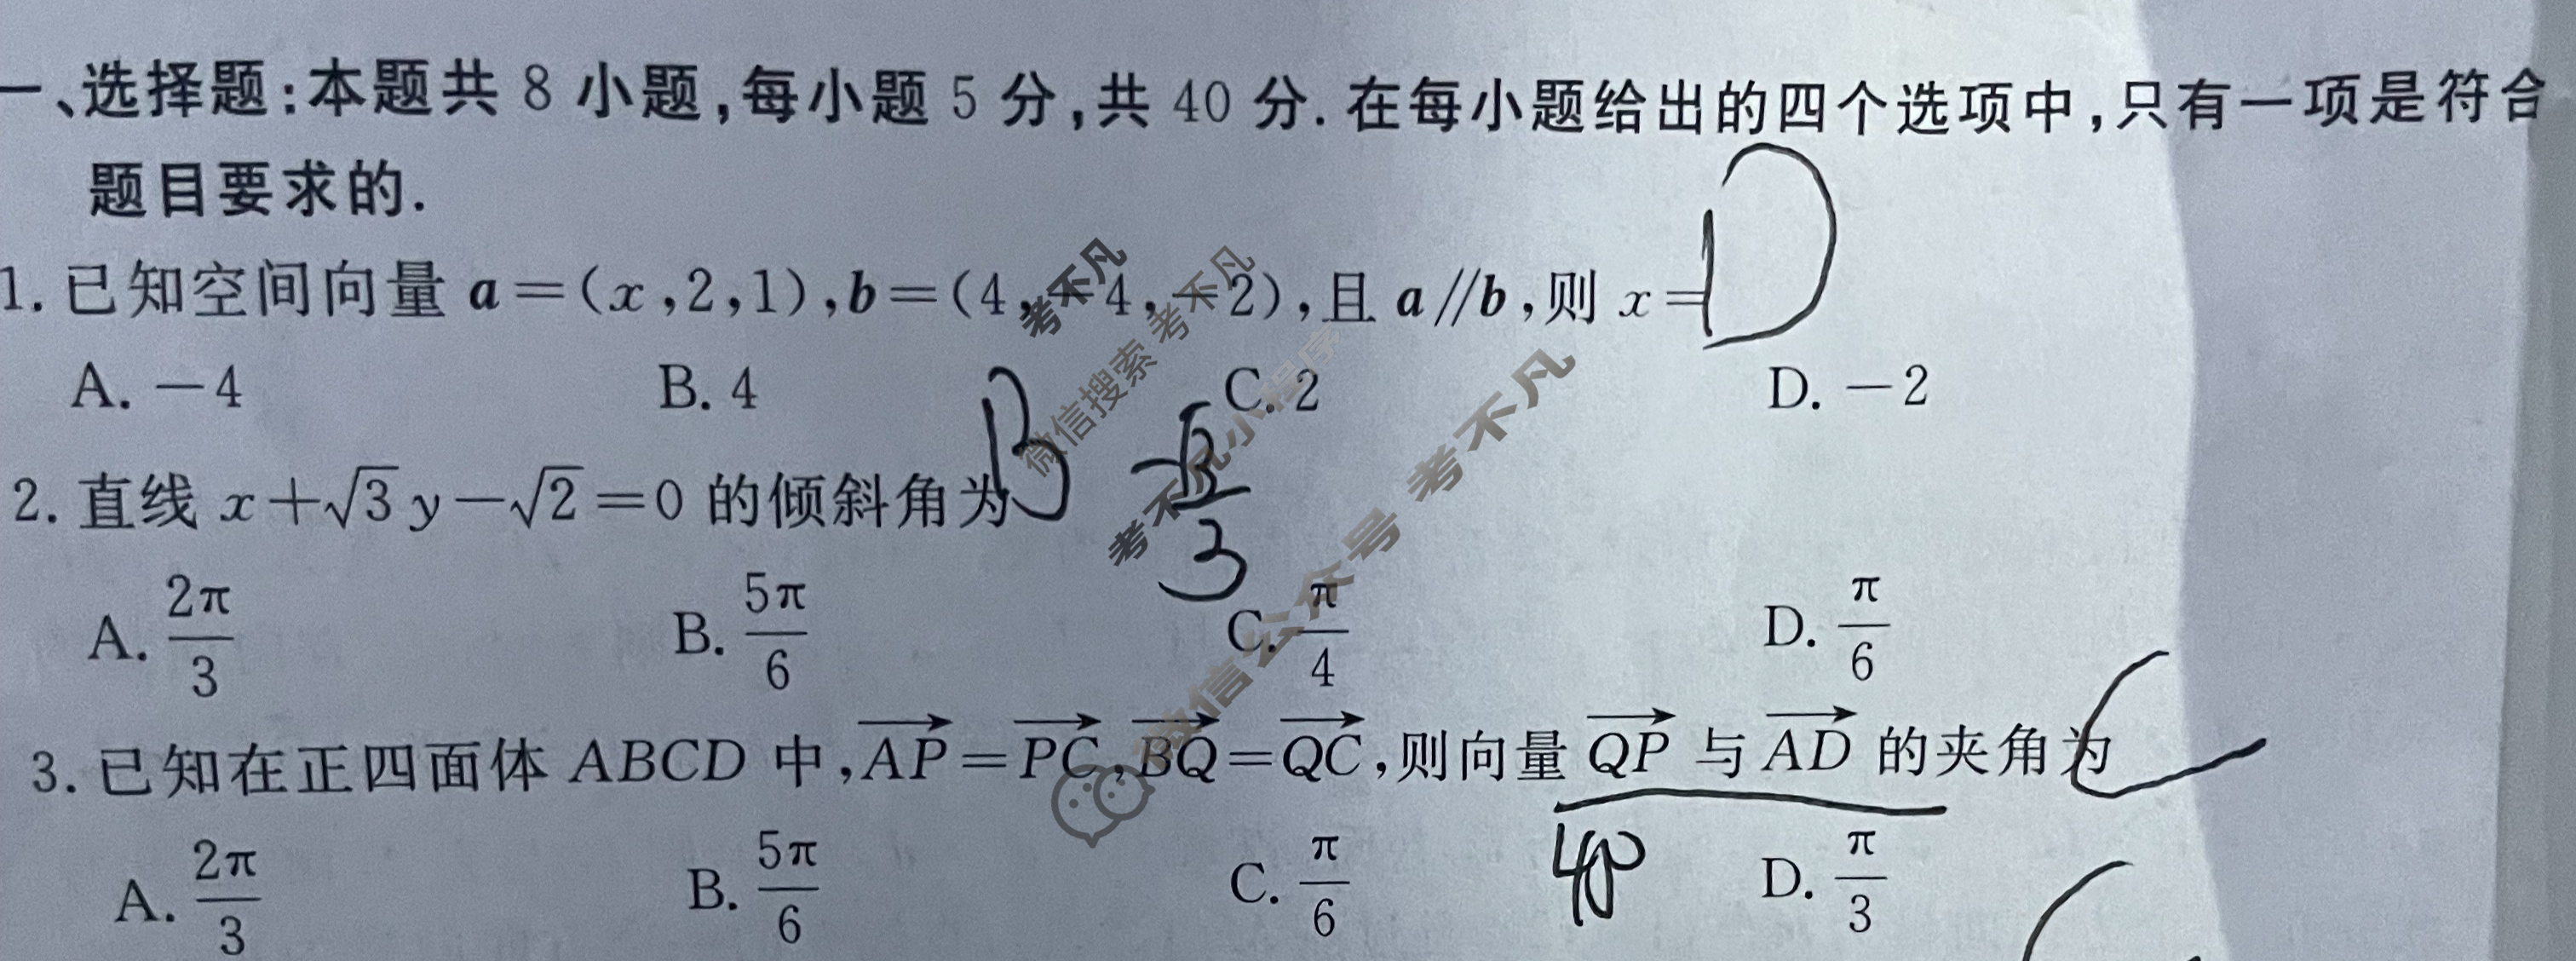 一、选择题:本题共 8 小题,每小题 5 分,共 40 分. 在每小题给出的四个选项中,只有一项是符合
题目要求的.
1. 已知空间向量 a=(x,2,1),b=(4,−4,−2),且 a∥b,则 x= D
A. −4 B. 4 C. 2 D. −2
2. 直线 x+√3y−√2=0 的倾斜角为 B −√3/3
A. 2π/3 B. 5π/6 C. π/4 D. π/6
3. 已知在正四面体 ABCD 中,AP→=PC→,BQ→=QC→,则向量 QP→ 与 AD→ 的夹角为 C
A. 2π/3 B. 5π/6 C. π/6 D. π/3
考不凡
微信搜索 考不凡
考不凡小程序
微信公众号 考不凡